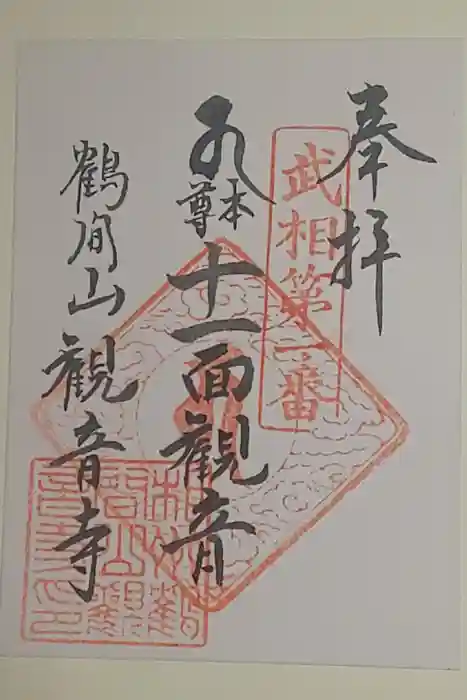 奉拝
武相第一番
本尊
十一面観音
鶴間山
観音寺